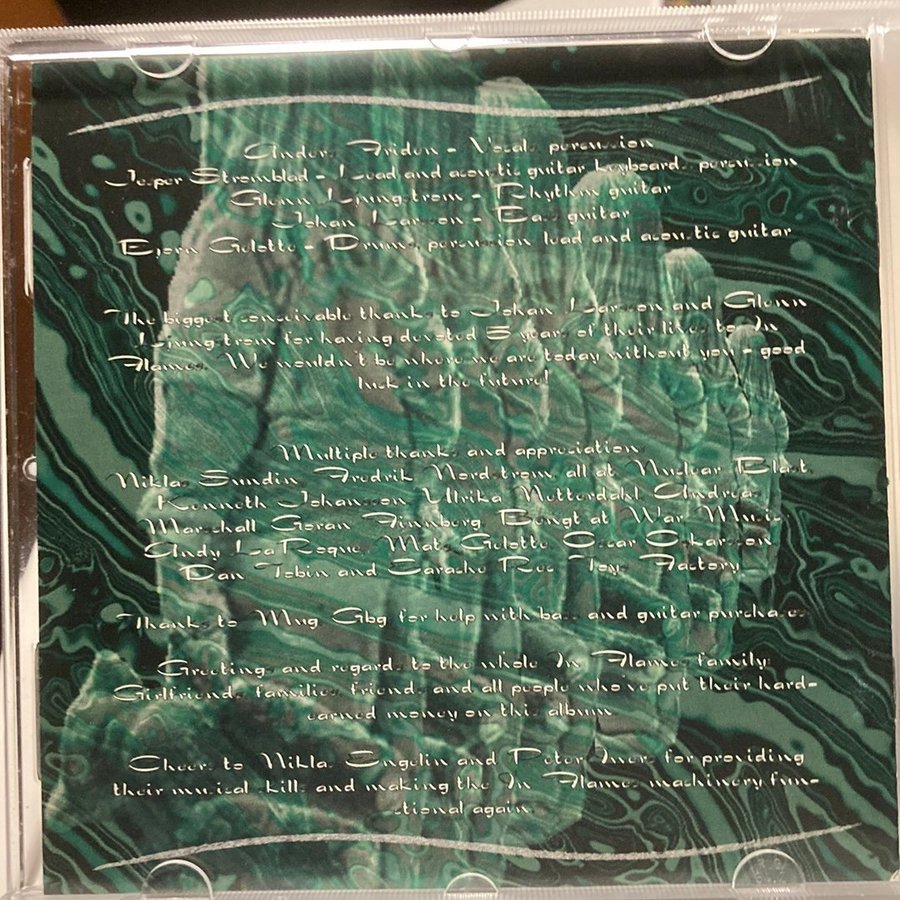 Anders Friden - Vocals percussion
Jesper Stromblad - Lead and acoustic guitar keyboards percussion
Glenn Ljungstrom - Rhythm guitar
Johan Larsson - Bass guitar
Bjorn Gelotte - Drums percussion lead and acoustic guitar
The biggest conceivable thanks to Johan Larsson and Glenn
Ljungstrom for having devoted 5 years of their lives to In
Flames. We wouldn't be where we are today without you - good
luck in the future!
Multiple thanks and appreciation
Niklas Sundin Fredrik Nordstrom all at Nuclear Blast
Kenneth Johansson Ulrika Netterdahl Andreas
Marschall Goran Finnberg Bengt at War Music
Andy LaRoque Mats Gelotte Oscar Oskarsson
Dan Tobin and Earache Rec Toys Factory
Thanks to Mug Gbg for help with bass and guitar purchases
Greetings and regards to the whole In Flames family:
Girlfriends families friends and all people who've put their hard-
earned money on this album
Cheers to Niklas Engelin and Peter Iwers for providing
their musical skills and making the In Flames machinery func-
tional again.